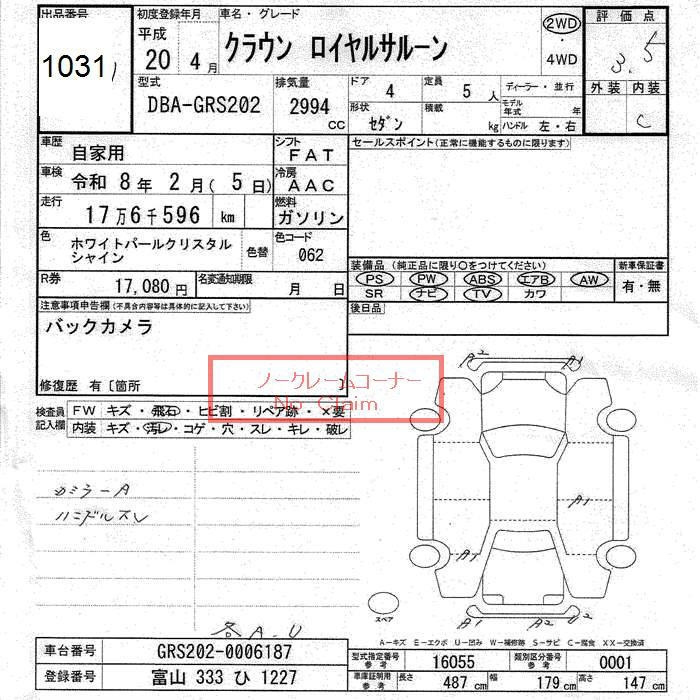 出品番号 初度登録年月 車名・グレード 2WD・4WD 評価点
1031 平成 20年 4月 クラウン ロイヤルサルーン 3.5
型式 排気量 ドア 定員 ディーラー・並行 外装 内装
DBA-GRS202 2994cc 4 5人 モデル年式 年 C
形状 セダン 積載 kg ハンドル 左・右
車歴 自家用 シフト FAT セールスポイント(正常に機能するものに限ります)
車検 令和 8年 2月(5日) 冷房 AAC
走行 17万6千596km 燃料 ガソリン
色 ホワイトパールクリスタルシャイン 色替 色コード 062
装備品 (純正品に限り○をつけてください) 新車保証書
R券 17,080円 名変通知期限 月 日 PS PW ABS エアB AW 有・無
SR ナビ TV カワ
注意事項申告欄(不具合内容等は具体的に記入して下さい) 後日品
バックカメラ
修復歴 有〔箇所 〕
ノークレームコーナー
No Claim
検査員記入欄 FW キズ・飛石・ヒビ割・リペア跡・×要
内装 キズ・汚レ・コゲ・穴・スレ・キレ・破レ
A2 A1
カミラーA
ハンドルスレ
A1
A1
スペア
A1 A2 U
各A.U
A-キズ E-エクボ U-凹み W-補修跡 S-サビ C-腐食 XX-交換済
車台番号 GRS202-0006187 型式指定番号 参考 16055 類別区分番号 参考 0001
登録番号 富山 333 ひ 1227 車庫証明用 参考 長さ 487cm 幅 179cm 高さ 147cm